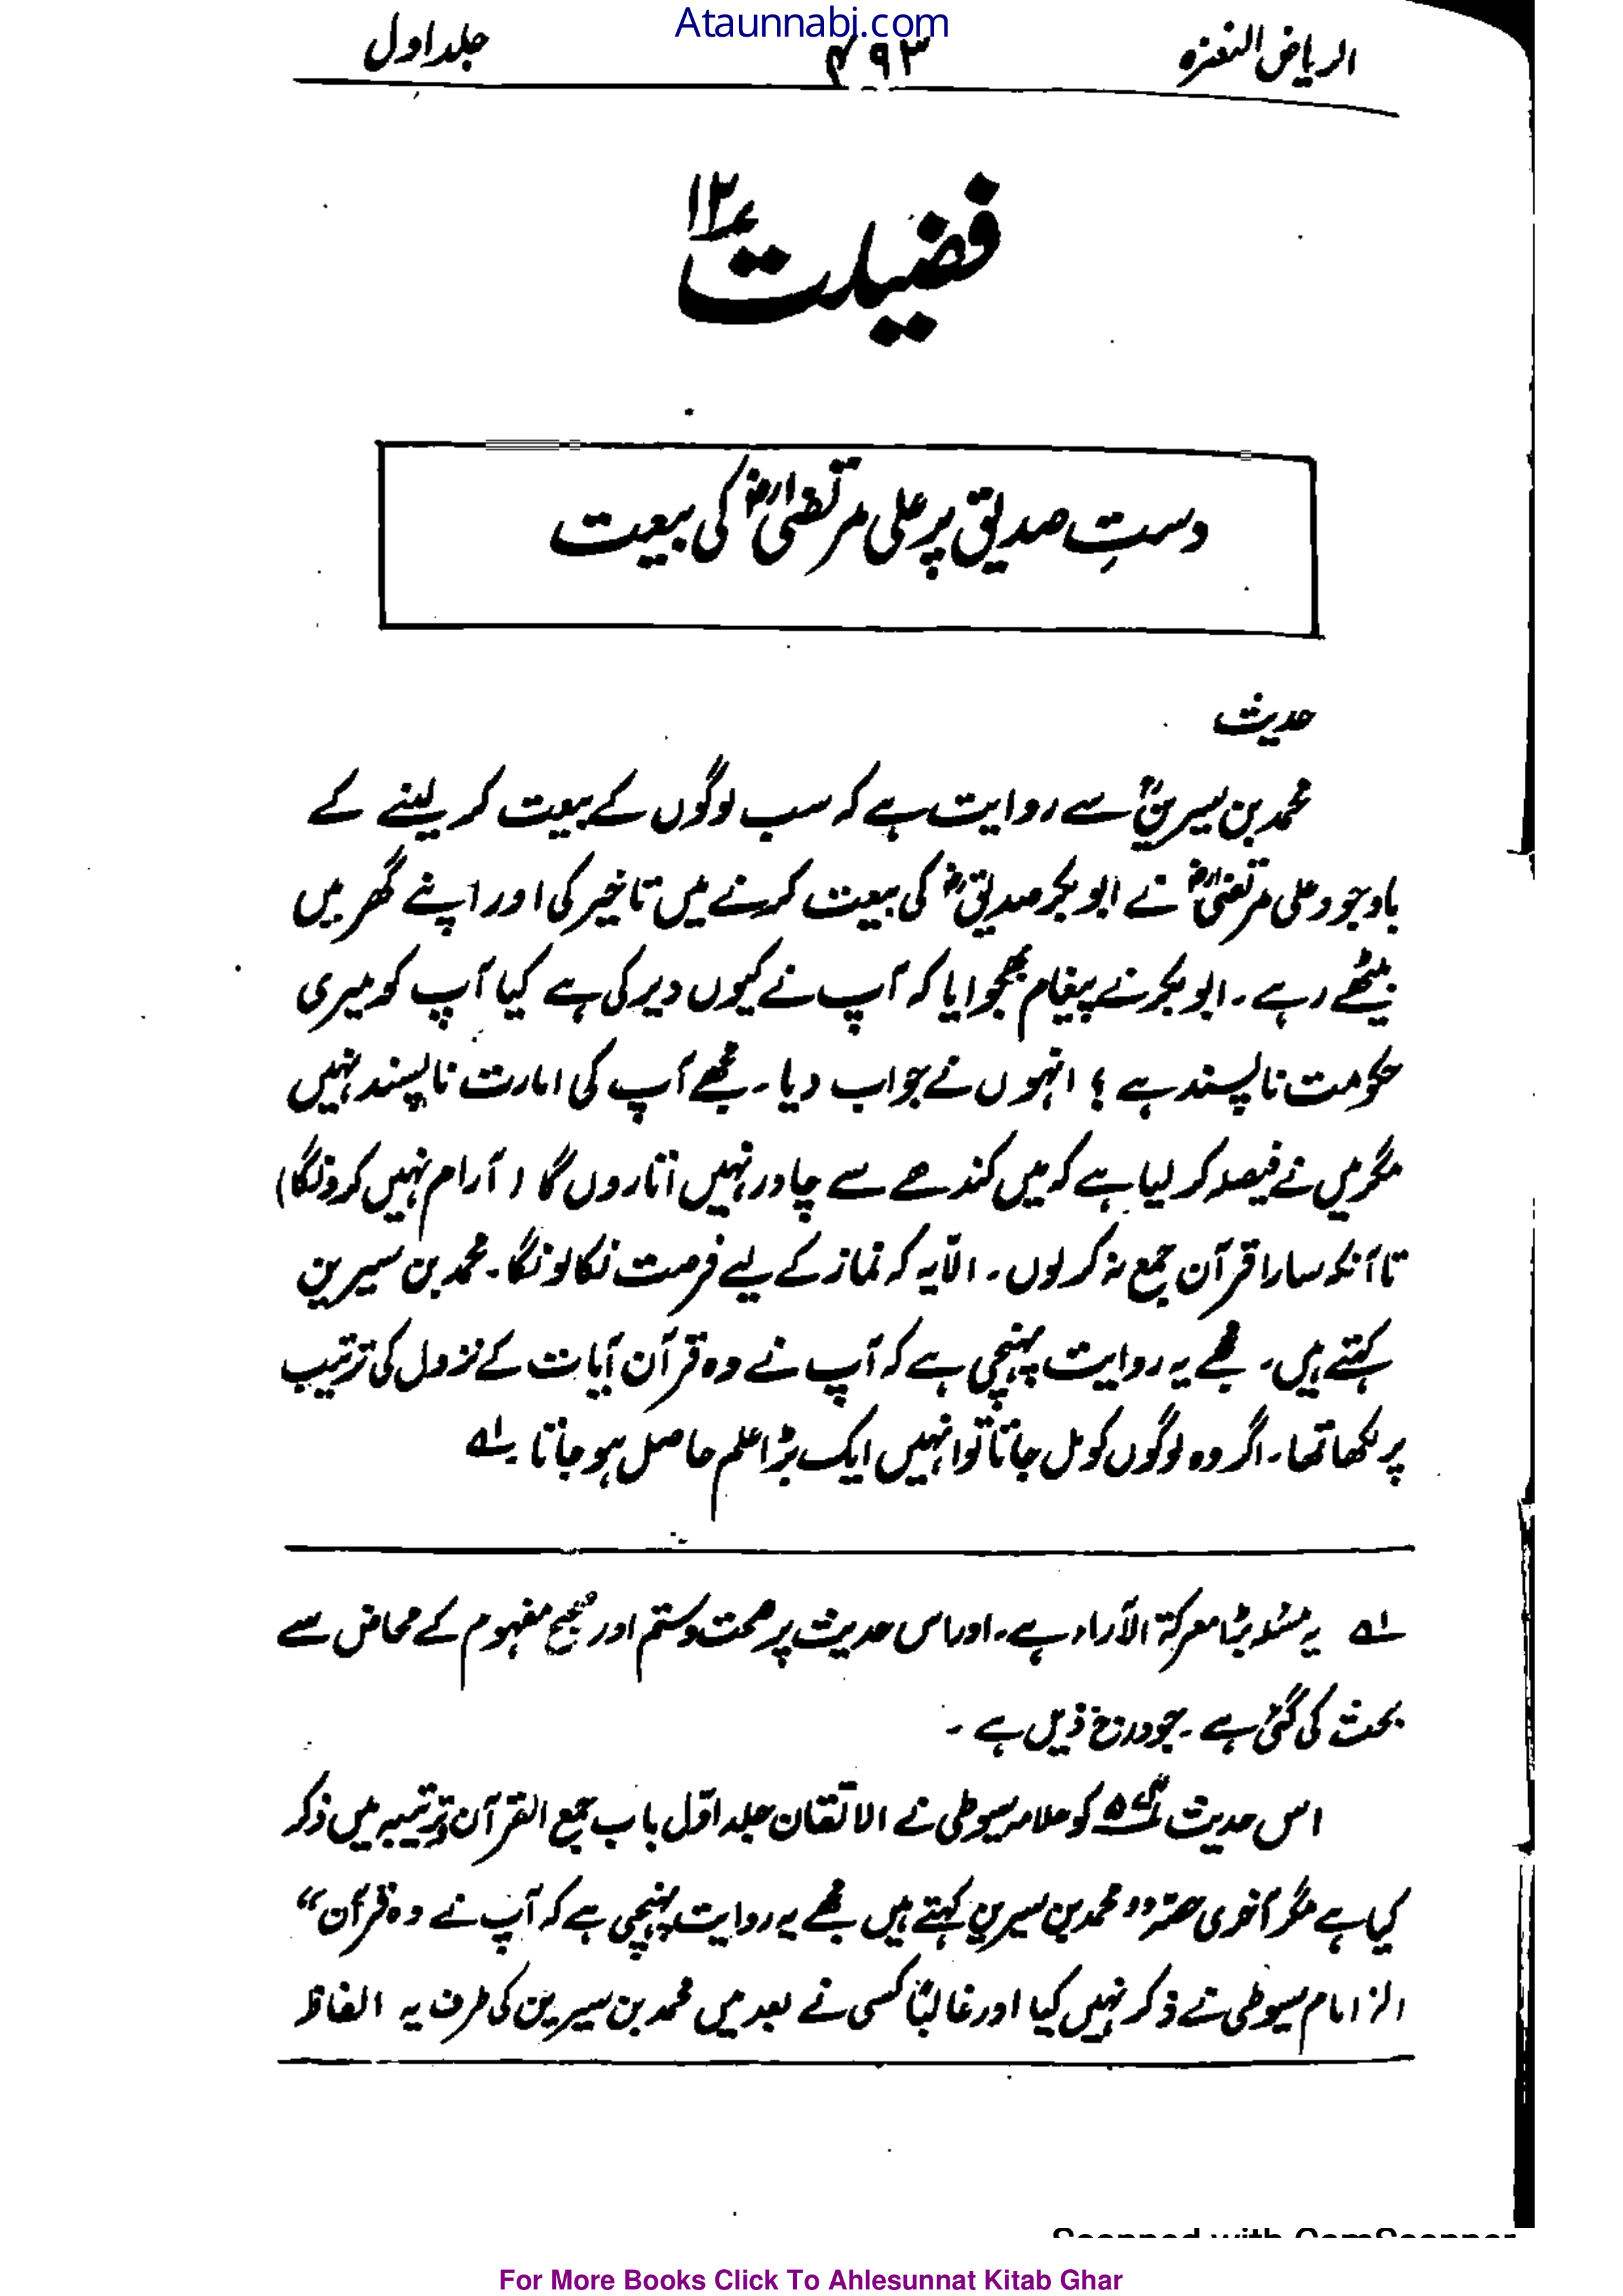 Ataunnabi.com
الریاض النضرہ ۴۹۳ جلد اول
فضیلت ۱۳
دستِ صدیق پر علی مرتضیٰؓ کی بیعت
حدیث
محمد بن سیرینؒ سے روایت ہے کہ سب لوگوں کے بیعت کر لینے کے
باوجود علی مرتضیٰؓ نے ابو بکر صدیقؓ کی بیعت کرنے میں تاخیر کی اور اپنے گھر میں
بیٹھے رہے۔ ابو بکر نے پیغام بھجوایا کہ آپ نے کیوں دیر کی ہے کیا آپ کو میری
حکومت ناپسند ہے ؟ انہوں نے جواب دیا۔ مجھے آپ کی امارت ناپسند نہیں
مگر میں نے فیصلہ کر لیا ہے کہ میں کندھے سے چادر نہیں اتاروں گا (آرام نہیں کرونگا)
تا آنکہ سارا قرآن جمع نہ کر لوں۔ الّا یہ کہ نماز کے لیے فرصت نکالونگا۔ محمد بن سیرین
کہتے ہیں۔ مجھے یہ روایت پہنچی ہے کہ آپ نے وہ قرآن آیات کے نزول کی ترتیب
پر لکھا تھا۔ اگر وہ لوگوں کو مل جاتا تو انہیں ایک بڑا علم حاصل ہو جاتا۔ لہ
لہ یہ مسئلہ بڑا معرکۃ الآراء ہے۔ اور اس حدیث پر صحت و سقم اور صحیح مفہوم کے محاض سے
بحث کی گئی ہے۔ جو درج ذیل ہے۔
اس حدیث کو علامہ سیوطی نے الاتقان جلد اوّل باب جمع القرآن و ترتیبہ میں ذکر
کیا ہے مگر آخری حصّہ "محمد بن سیرین کہتے ہیں مجھے یہ روایت پہنچی ہے کہ آپ نے وہ قرآن"
الخ امام سیوطی نے ذکر نہیں کیا اور غالباً کسی نے بعد میں محمد بن سیرین کی طرف یہ الفاظ
Scanned with CamScanner
For More Books Click To Ahlesunnat Kitab Ghar